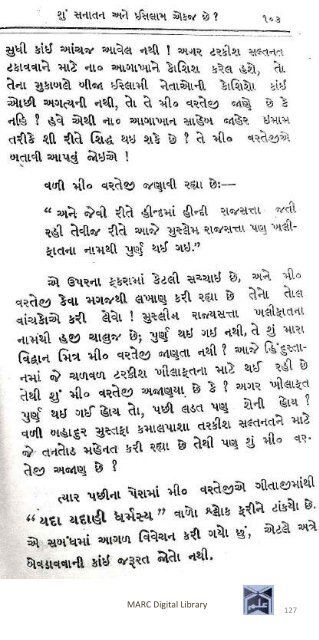 શું સનાતન અને ઈસલામ એકજ છે ?
૧૦૩
સુધી કાંઈ આંચજ આવેલ નથી ! અગર ટરકીશ સલ્તનત
ટકાવવાને માટે ના૦ આગાખાને કોશિશ કરેલ હશે, તો
તેના મુકાબલે બીજા ઈસ્લામી નેતાઓની કોશિશો કાંઈ
ઓછી અગત્યની નથી, તો તે મી૦ વરતેજી જાણે છે કે
નહિ ! હવે એથી ના૦ આગાખાન સાહેબ જાહેર ઇમામ
તરીકે શી રીતે સિદ્ધ થઇ શકે છે ! તે મી૦ વરતેજીએ
બતાવી આપવું જોઇએ !
વળી મી૦ વરતેજી જણાવી રહ્યા છે:—
“ અને જેવી રીતે હીન્દમાં હીન્દી રાજસત્તા જતી
રહી તેવીજ રીતે આજે મુસ્લેમ રાજસત્તા પણ ખલી-
ફાતના નામથી પુર્ણ થઈ ગઇ.”
એ ઉપરના ફકરામાં કેટલી સચ્ચાઈ છે, અને મી૦
વરતેજી કેવા મગજથી લખાણુ કરી રહ્યા છે તેનો તોલ
વાંચકોએ કરી લેવો ! મુસ્લીમ રાજ્યસત્તા ખલીફાતના
નામથી હજી ચાલુજ છે, પુર્ણ થઇ ગઇ નથી, તે શું મારા
વિદ્વાન મિત્ર મી૦ વરતેજી જાણતા નથી ! આજે હિંદુસ્તા-
નમાં જે ચળવળ ટરકીશ ખીલાફતના માટે થઈ રહી છે
તેથી શું મી૦ વરતેજી અજાણ્યા છે કે ? અગર ખીલાફત
પુર્ણ થઇ ગઈ હોય તો, પછી લડત પણ શેની હોય !
વળી બહાદુર મુસ્તફા કમાલપાશા તરકીશ સલ્તનતને માટે
જે તનતોડ મહેનત કરી રહ્યા છે તેથી પણ શું મી૦ વર-
તેજી અજાણ છે ?
ત્યાર પછીના પેરામાં મી૦ વરતેજીએ ગીતાજીમાંથી
“ યદા યદાહી ધર્મસ્ય ” વાળો શ્લોક ફરીને ટાંકયો છે.
એ સબંધમાં આગળ વિવેચન કરી ગયો છું, એટલે અત્રે
બેવડાવવાની કાંઈ જરૂરત જોતો નથી.
MARC Digital Library
127